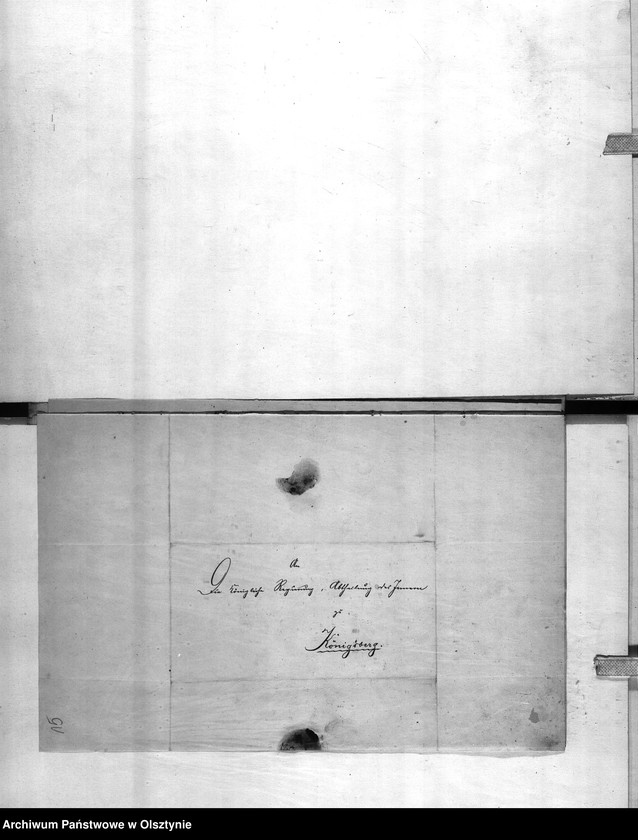 An
Die Königliche Regierung, Abtheilung des Innern
zu
Königsberg.
15
Archiwum Państwowe w Olsztynie